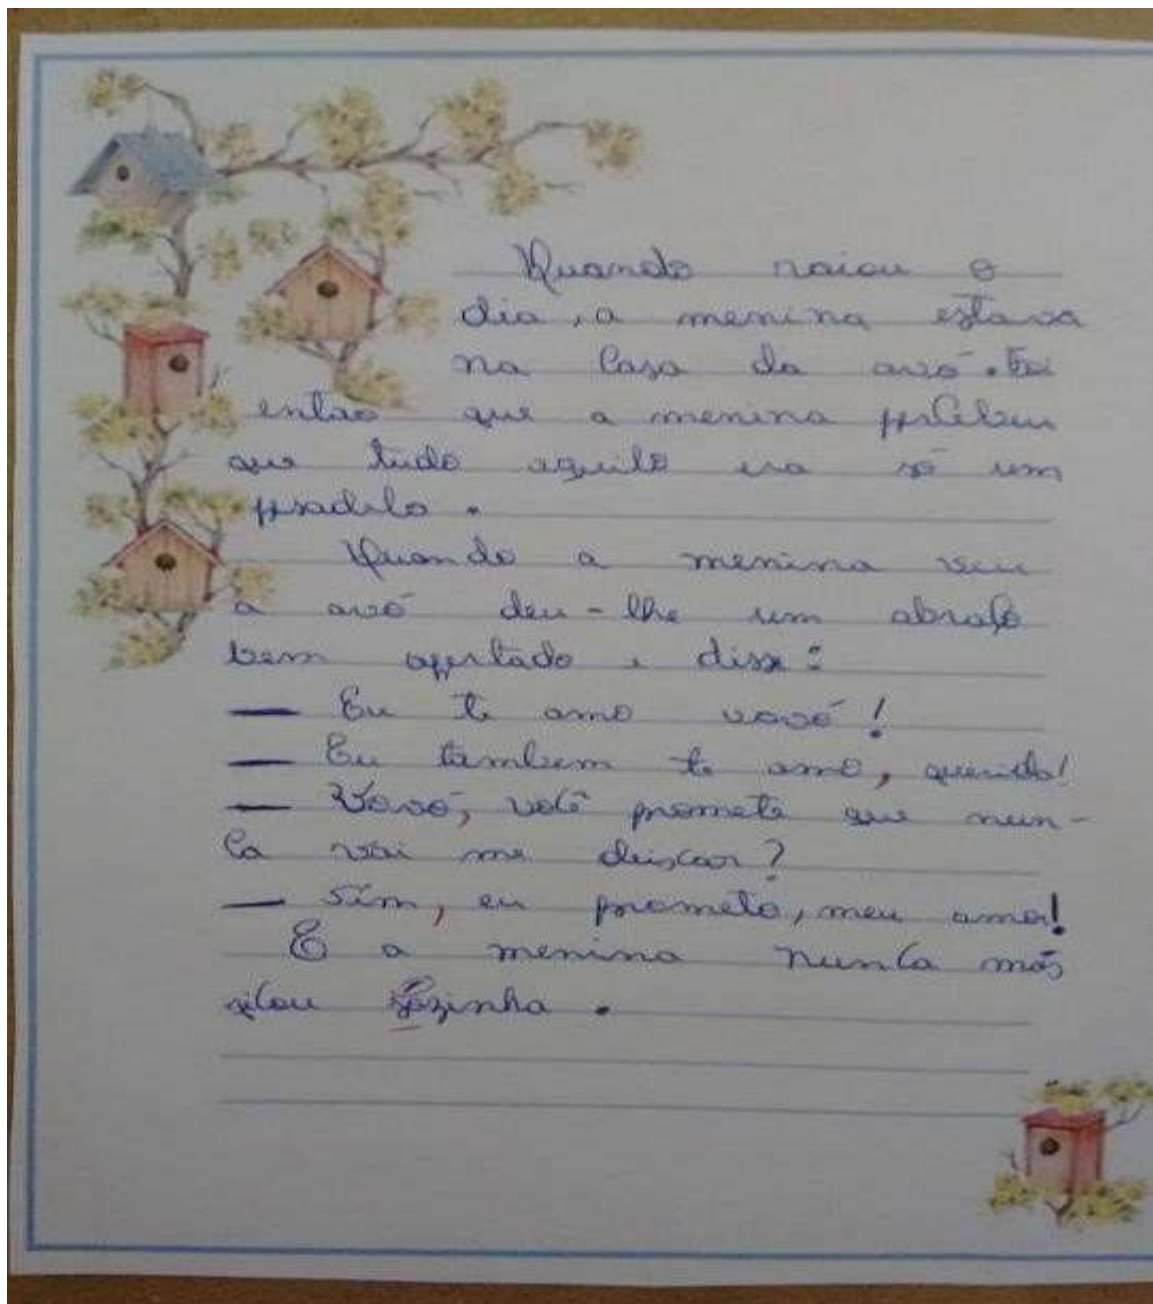 Quando raiou o
dia, a menina estava
na casa da avó. Foi
então que a menina percebeu
que tudo aquilo era só um
pesadelo.
Quando a menina viu
a avó deu-lhe um abraço
bem apertado e disse:
— Eu te amo vovó!
— Eu tambem te amo, querida!
— Vovó, você promete que nun-
ca vai me deixar?
— Sim, eu prometo, meu amor!
E a menina nunca más
ficou sózinha.